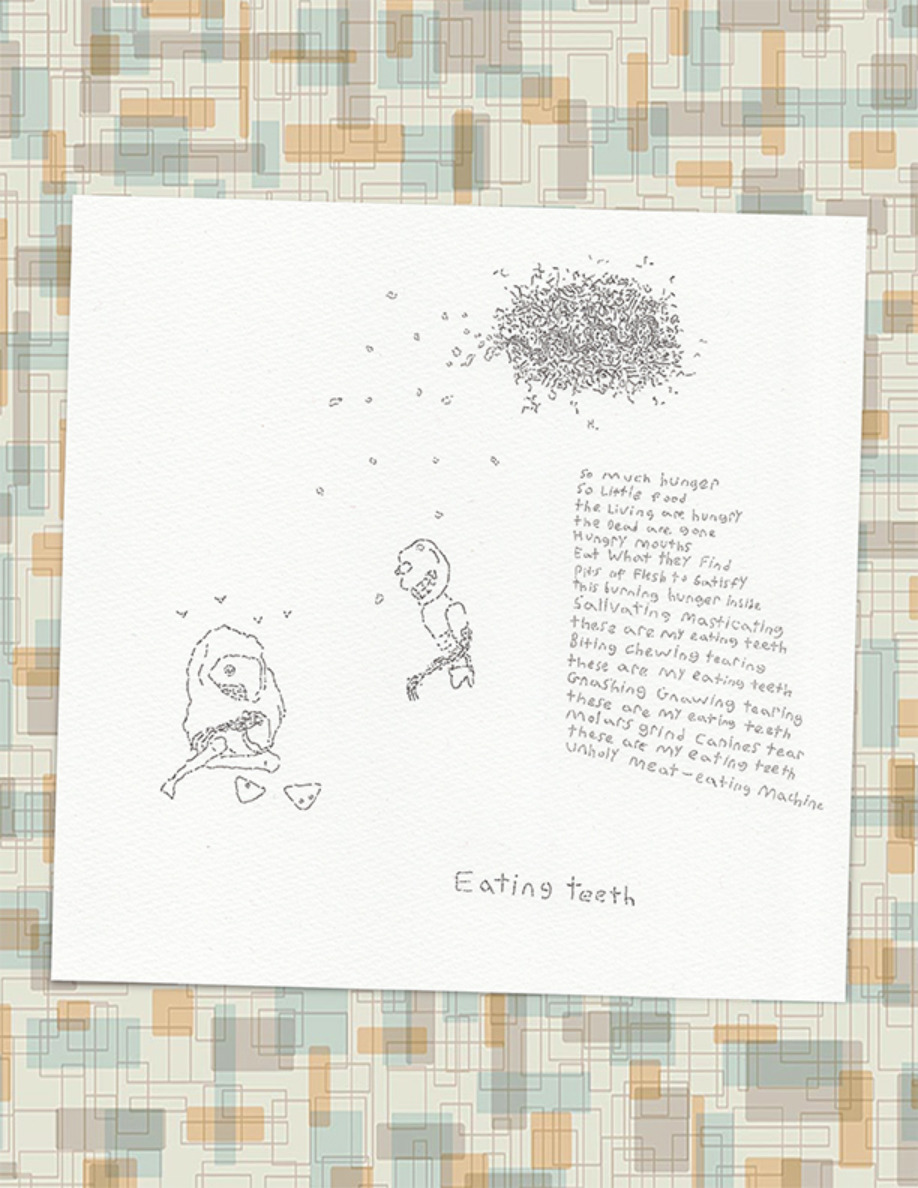 So much hunger
So Little food
the Living are hungry
the Dead are gone
Hungry mouths
Eat What they Find
Bits of Flesh to Satisfy
this burning hunger inside
Salivating Masticating
these are my eating teeth
Biting chewing tearing
these are my eating teeth
Gnashing Gnawing tearing
these are my eating teeth
Molars grind Canines tear
these are my eating teeth
Unholy Meat-eating Machine
Eating teeth